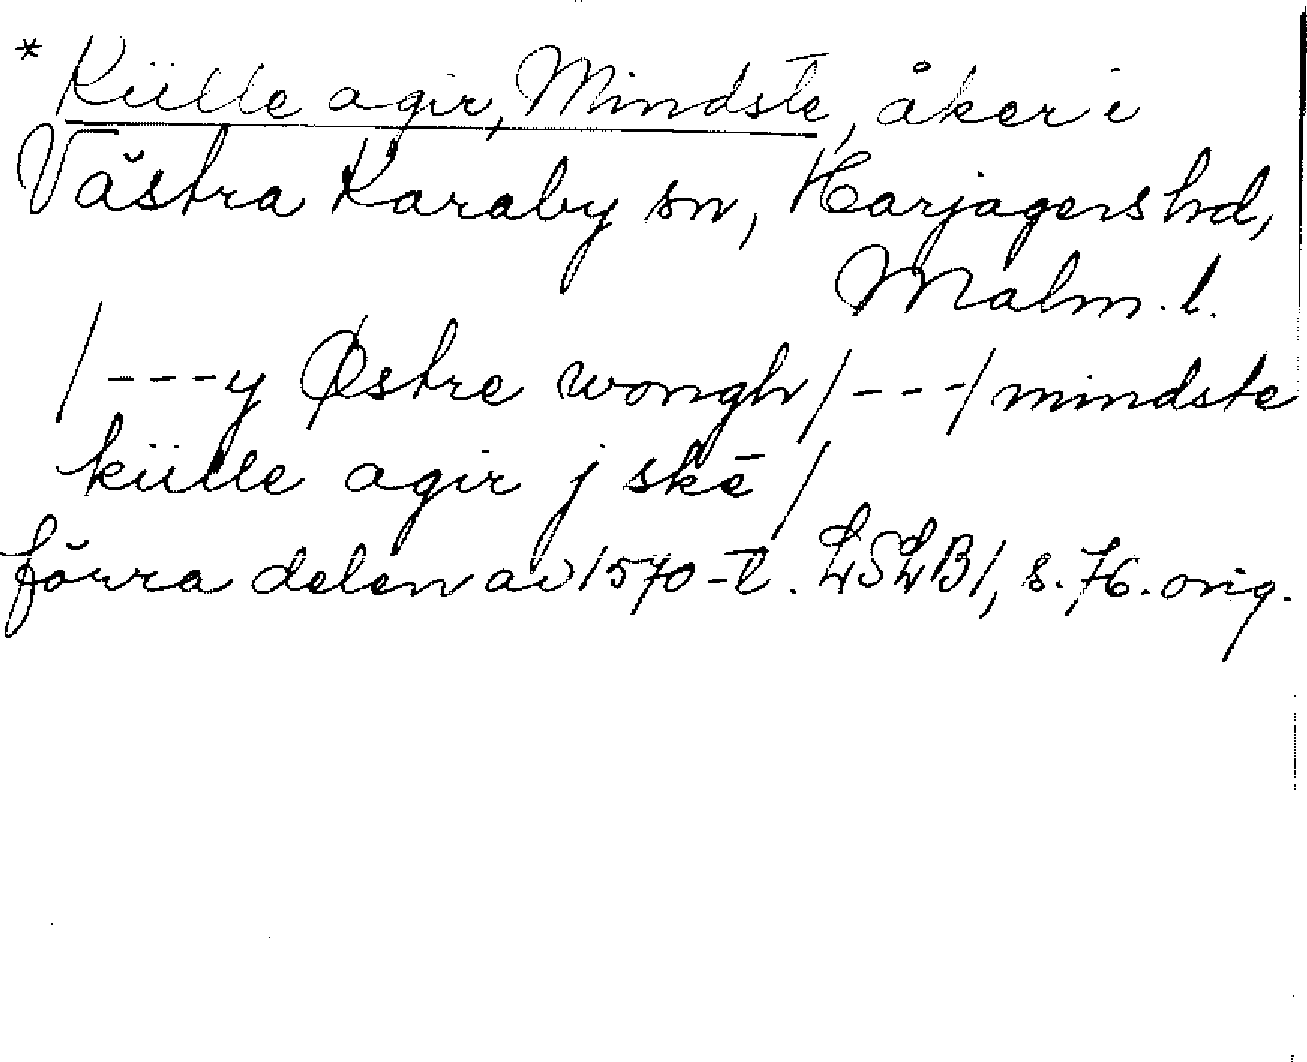 * Külle agir, Mindste, åker i
Västra Karaby sn, Harjagers hd,
Malm. l.
/---y Østre wongh/---/mindste
külle agir j skē/
förra delen av 1570-t. LSLB1, s. 76. orig.